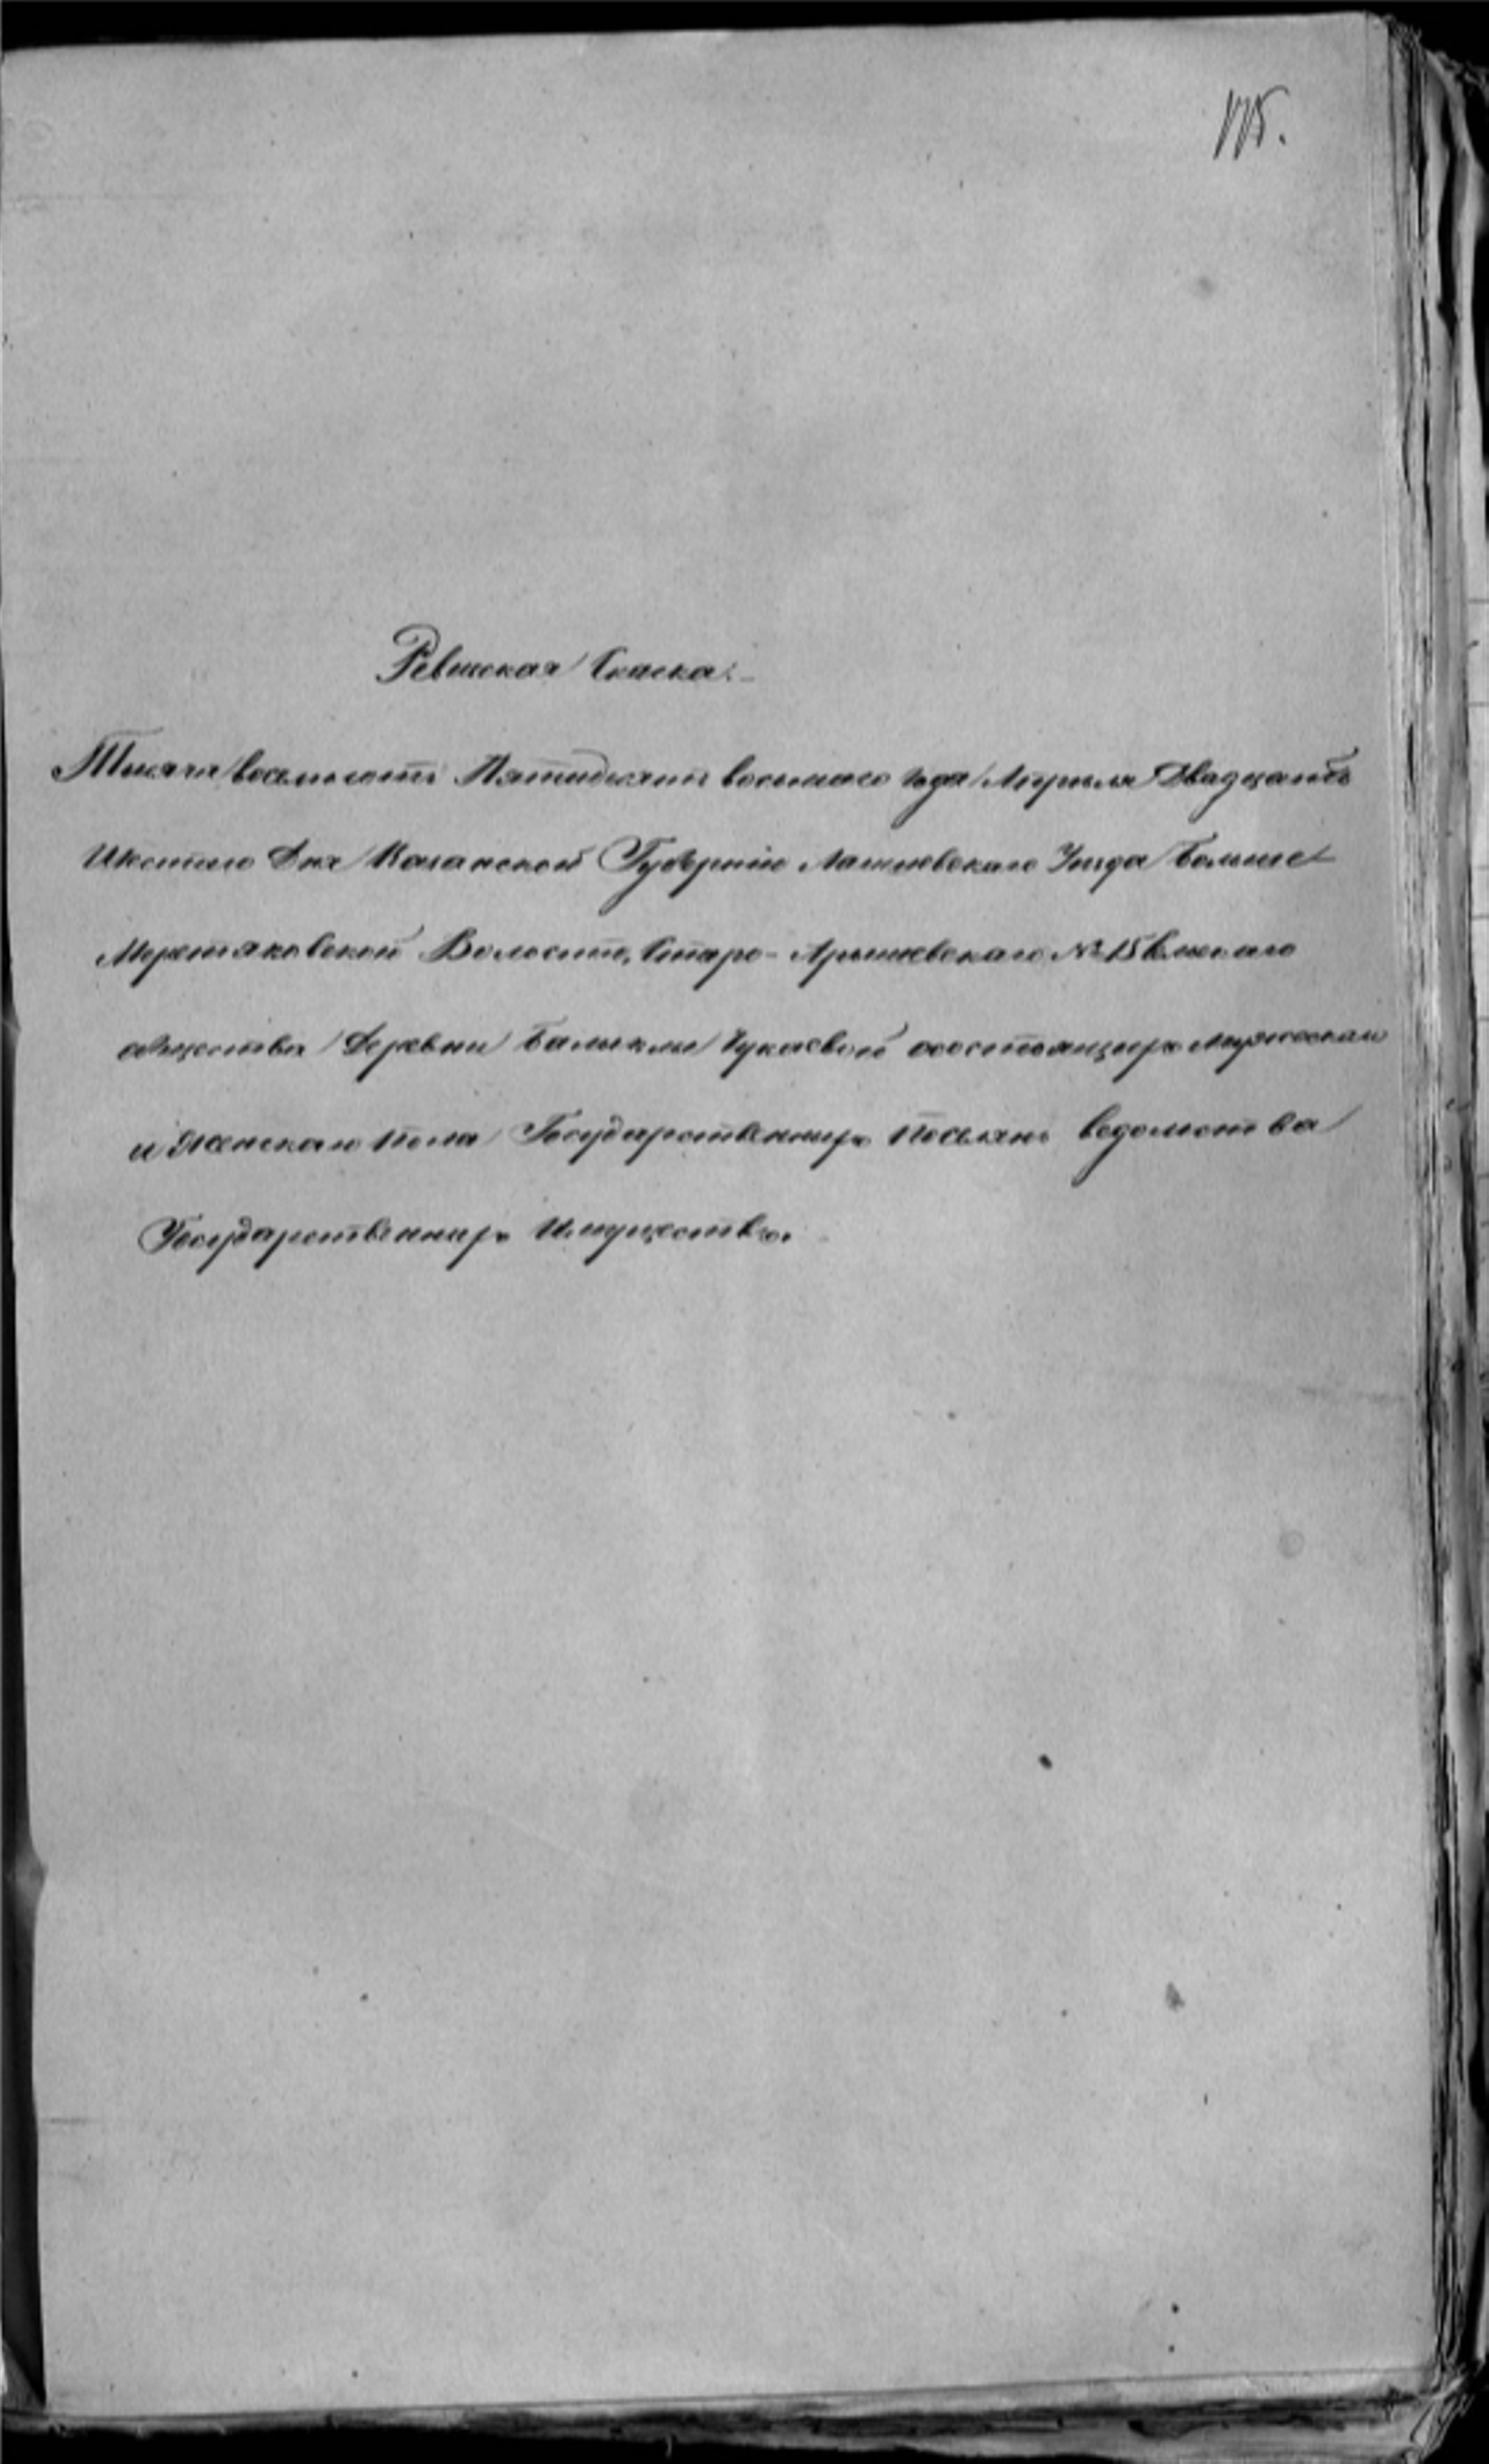 Ревиская Скаска.
Тысяча восемьсотъ Пятидесятъ восьмаго года Апреля Двадцать
Шестаго Дня Казанской Губерніи Лаишевскаго Уезда Больше
Меретяковской Волости, Старо-Арышевскаго № 15 Сельскаго
общества Деревни Балыклы Чукаевой состоящихъ мужескаго
и Женскаго Пола Государственныхъ Поселянъ ведомства
Государственныхъ Имуществъ.